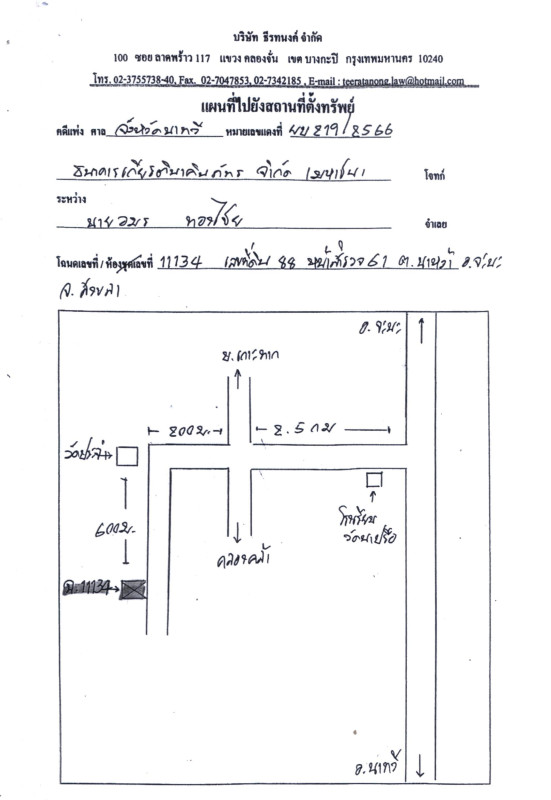 บริษัท ธีรทนงค์ จำกัด
100 ซอย ลาดพร้าว 117 แขวง คลองจั่น เขต บางกะปิ กรุงเทพมหานคร 10240
โทร. 02-3755738-40, Fax. 02-7047853, 02-7342185 , E-mail : teeratanong.law@hotmail.com
แผนที่ไปยังสถานที่ตั้งทรัพย์
คดีแพ่ง ศาล จังหวัดนาทวี หมายเลขแดงที่ ผบ 219/2566
ธนาคารเกียรตินาคินภัทร จำกัด (มหาชน) โจทก์
ระหว่าง
นายอมร ทองไชย จำเลย
โฉนดเลขที่ / ห้องชุดเลขที่ 11134 เลขที่ดิน 88 หน้าสำรวจ 61 ต.นาหว้า อ.จะนะ
จ. สงขลา
อ.จะนะ
บ.เกาะทาก
200 ม.
2.5 กม
วัด
600 ม.
โรงเรียน
วัดนาปรือ
คลองคล้า
11134
อ.นาทวี